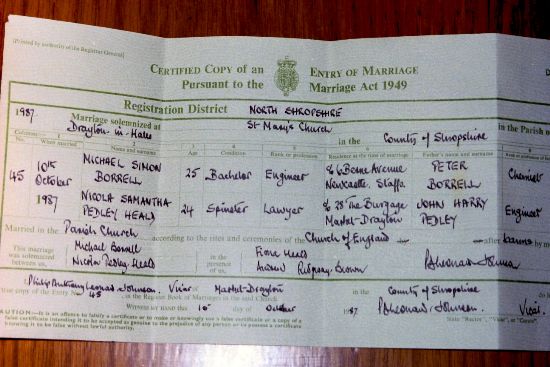 [Printed by authority of the Registrar General]
CERTIFIED COPY of an ENTRY OF MARRIAGE
Pursuant to the Marriage Act 1949
Registration District NORTH SHROPSHIRE
1987 Marriage solemnized at St Mary's Church in the Parish of
Drayton-in-Hales in the County of Shropshire
Columns:— 1 2 3 4 5 6 7 8
No. When married Name and surname Age Condition Rank or profession Residence at the time of marriage Father's name and surname Rank or profession of
45 10th October 1987
MICHAEL SIMON BORRELL 25 Bachelor Engineer 6 Avenue Newcastle, Staffs PETER BORRELL Chemist
NICOLA SAMANTHA PEDLEY HEALD 24 Spinster Lawyer 28 The Burgage Market Drayton JOHN HARRY PEDLEY Engineer
Married in the Parish Church according to the rites and ceremonies of the Church of England after banns
This marriage was solemnized between us, Michael Borrell
Nicola Pedley Heald
in the presence of us, Fiona Heald
Andrew Brown
P B Leonard Johnson
Philip Leonard Johnson, Vicar of Market Drayton in the County of Shropshire
true copy of the Entry No. 45 in the Register Book of Marriages in the said Church
WITNESS MY HAND this 10th day of October 1987 P B Leonard Johnson, Vicar
State "Rector", "Vicar", or "Curate".
CAUTION—It is an offence to falsify a certificate or to make or knowingly use a false certificate or a copy of
a false certificate intending it to be accepted as genuine to the prejudice of any person or to possess a certificate
knowing it to be false without lawful authority.